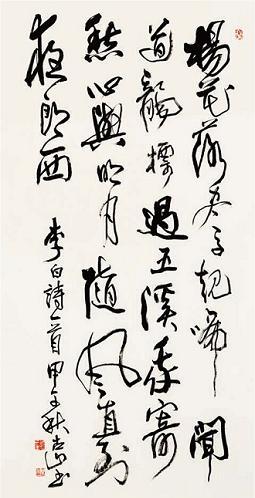 楊花落尽子規啼聞
道龍標過五溪我寄
愁心與明月隨風直到
夜郎西
李白詩一首甲子秋